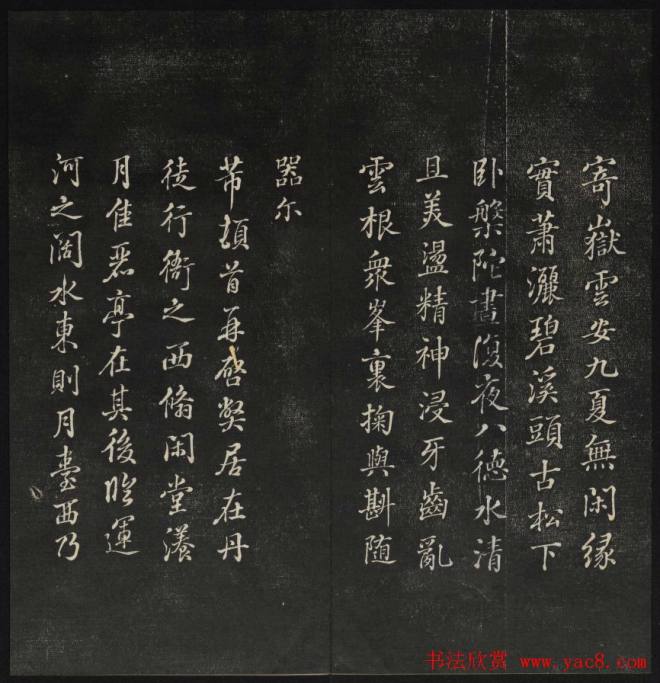 寄嶽雲安九夏無閑緣
實蕭灑碧溪頭古松下
卧槃陀晝復夜八德水清
且美盪精神浸牙齒亂
雲根衆峯裏掬與斟随
器尔
芾頓首再啓弊居在丹
徒行衙之西脩閑堂漾
月佳麗亭在其後臨運
河之闊水東則月臺西乃
书法欣赏 www.yac8.com